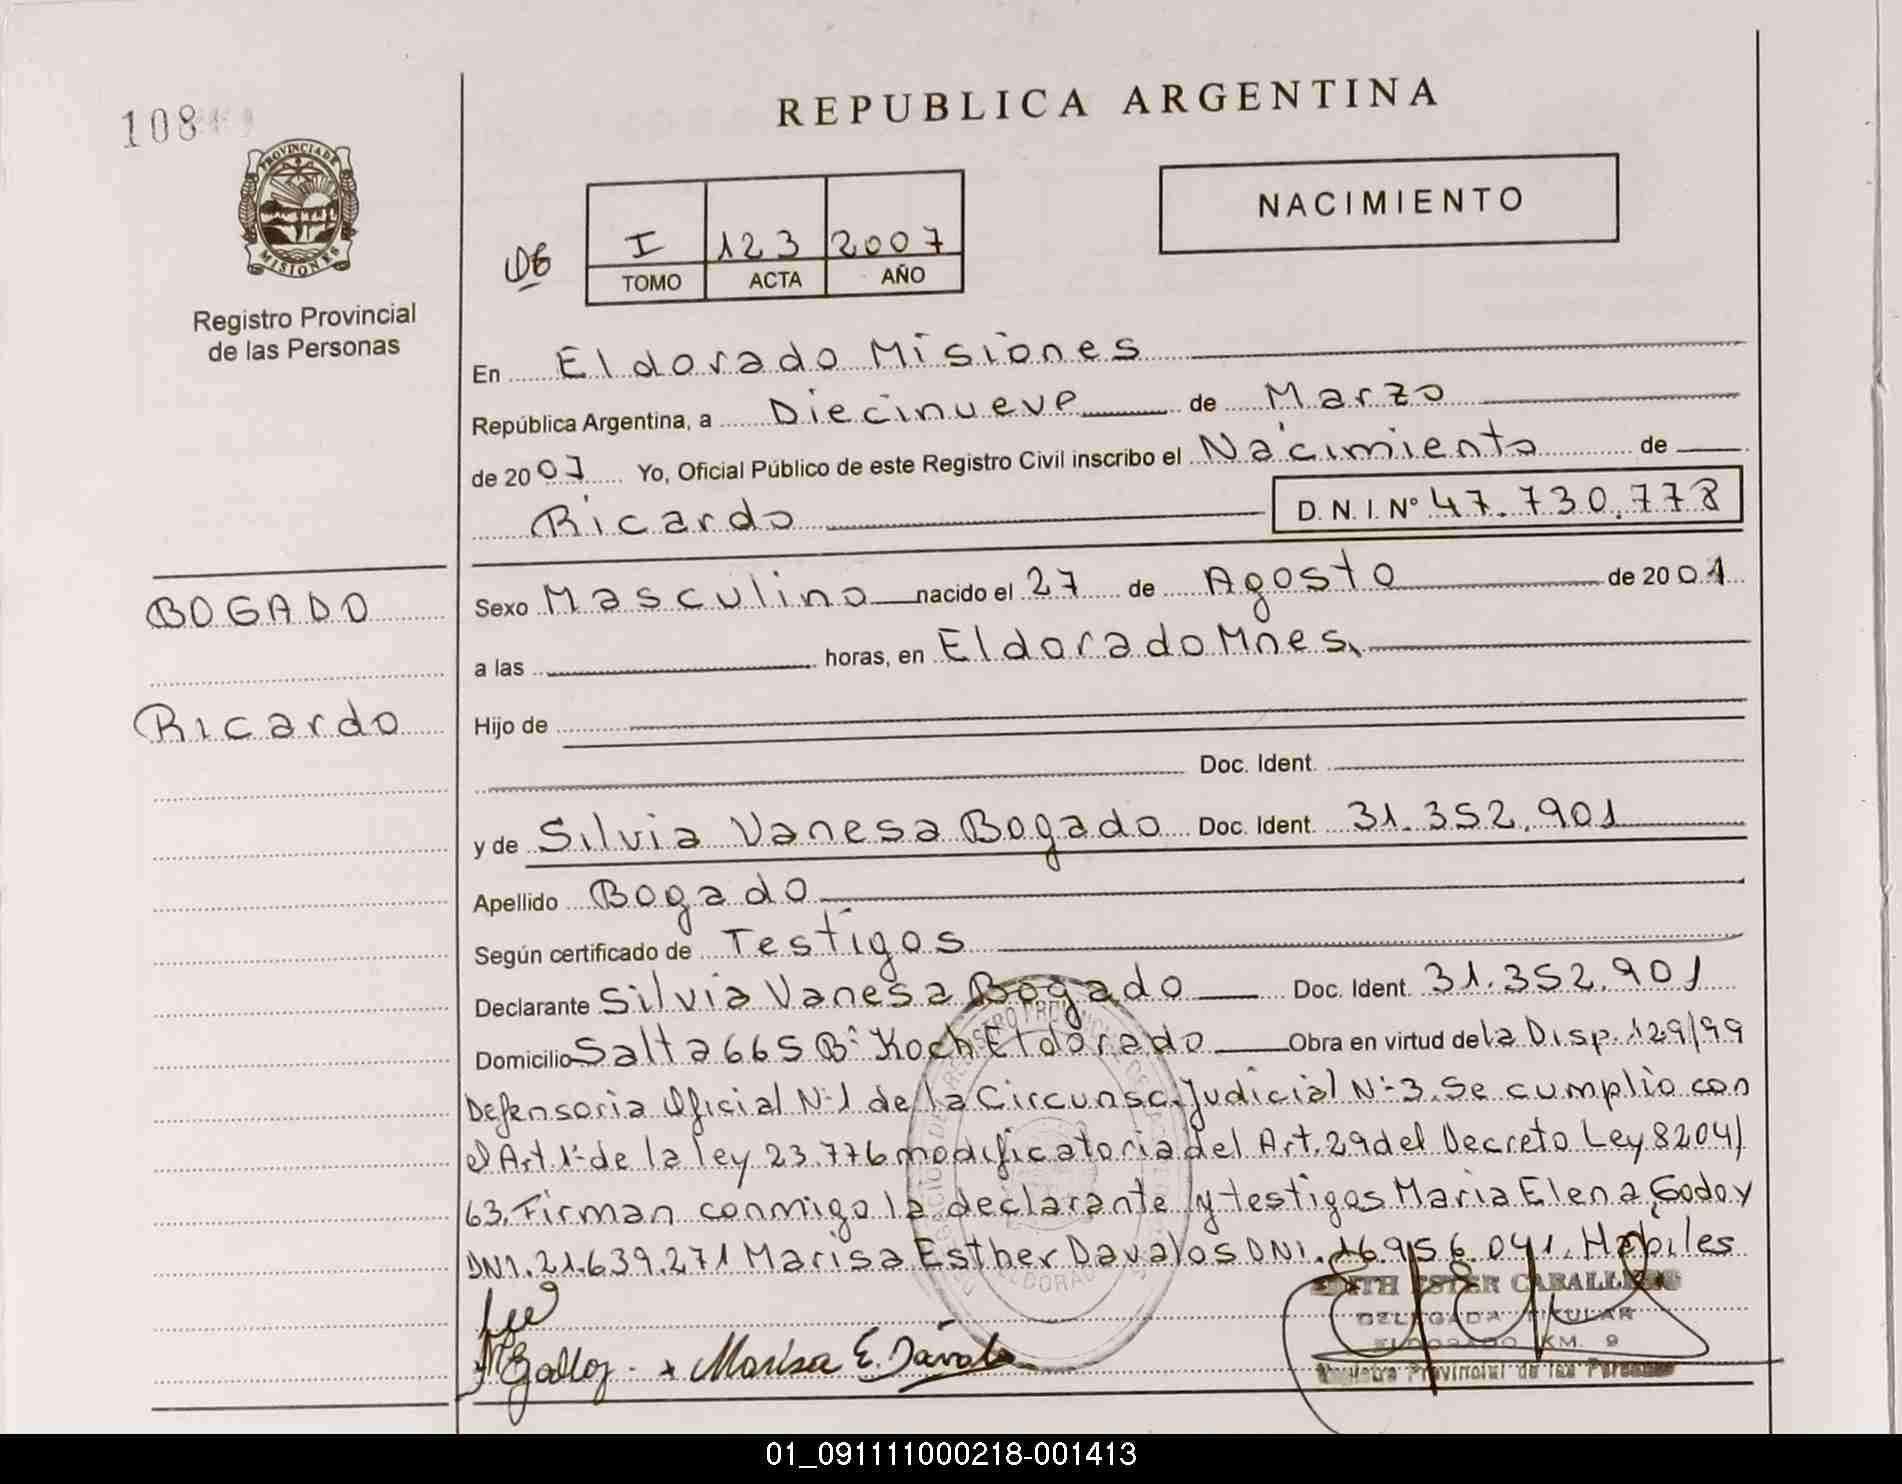 REPUBLICA ARGENTINA
108
PROVINCIA DE MISIONES
Registro Provincial
de las Personas
NACIMIENTO
I 123 2007
TOMO ACTA AÑO
En Eldorado Misiones
República Argentina, a Diecinueve de Marzo
de 2007 Yo, Oficial Público de este Registro Civil inscribo el Nacimiento de
Ricardo D.N.I. Nº 47.730.778
BOGADO
Ricardo
Sexo Masculino nacido el 27 de Agosto de 2001
a las horas, en Eldorado Mnes.
Hijo de
Doc. Ident.
y de Silvia Vanesa Bogado Doc. Ident. 31.352.901
Apellido Bogado
Según certificado de Testigos
Declarante Silvia Vanesa Bogado Doc. Ident. 31.352.901
Domicilio Salta 665 Bº Koch Eldorado Obra en virtud de la Disp. 129/99
Defensoria Oficial Nº1 de la Circunsc. Judicial Nº3. Se cumplio con
el Art. 1º de la ley 23.776 modificatoria del Art. 29 del Decreto Ley 8204/
63. Firman conmigo la declarante y testigos Maria Elena Godoy
DNI. 21.639.271 Marisa Esther Davalos DNI. 16.956.041. Habiles
Marisa E. Daval
ESTER CABALLERO
DELEGADA TITULAR
ELDORADO KM. 9
Registro Provincial de las Personas
01_091111000218-001413